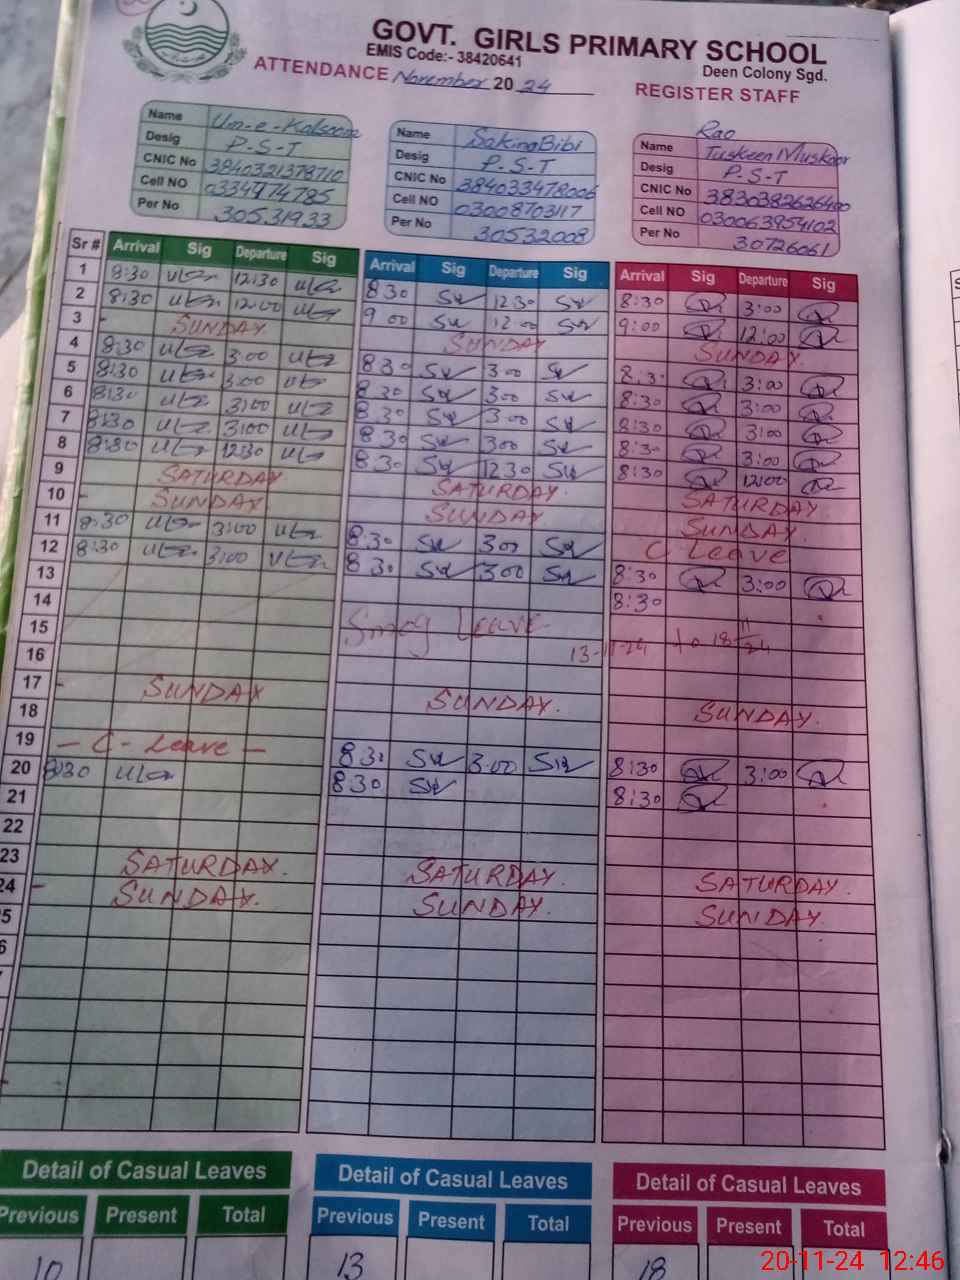 GOVT. GIRLS PRIMARY SCHOOL
EMIS Code:- 38420641
Deen Colony Sgd.
ATTENDANCE November 20 24
REGISTER STAFF
Name Um-e-Kalsoom
Desig P-S-T
CNIC No 3840321378710
Cell NO
Per No 30531933
Name Sakina Bibi
Desig P-S-T
CNIC No 3840334478006
Cell NO 03008703117
Per No 30532008
Rao
Name
Desig P-S-T
CNIC No 3830382626400
Cell NO 03006395402
Per No 30726061
Sr # Arrival Sig Departure Sig Arrival Sig Departure Sig Arrival Sig Departure Sig
1 8:30 12:30 8 30 12 30 8:30 3:00
2 8:30 12:00 9 00 12 00 9:00 12:00
3 SUNDAY SUNDAY SUNDAY.
4 8:30 3:00 8 30 3 00 8:30 3:00
5 8:30 3:00 8 30 3 00 8:30 3:00
6 8:30 3:00 8 30 3 00 8:30 3:00
7 8:30 3:00 8 30 3 00 8:30 3:00
8 8:30 12:30 8 30 12 30 8:30 12:00
9 SATURDAY SATURDAY. SATURDAY.
10 SUNDAY SUNDAY SUNDAY.
11 8:30 3:00 8:30 3 00 C Leave
12 8:30 3:00 8 30 3 00 8:30 3:00
13 8:30
14
15 Smog Leave 13-11-24 to 18 11/24
16
17 SUNDAY SUNDAY. SUNDAY.
18
19 - C - Leave - 8 30 3:00 8:30 3:00
20 8:30 8 30 8:30
21
22
23 SATURDAY. SATURDAY. SATURDAY.
24 SUNDAY. SUNDAY. SUNDAY.
5
6
Detail of Casual Leaves Detail of Casual Leaves Detail of Casual Leaves
Previous Present Total Previous Present Total Previous Present Total
10 13 18
20-11-24 12:46